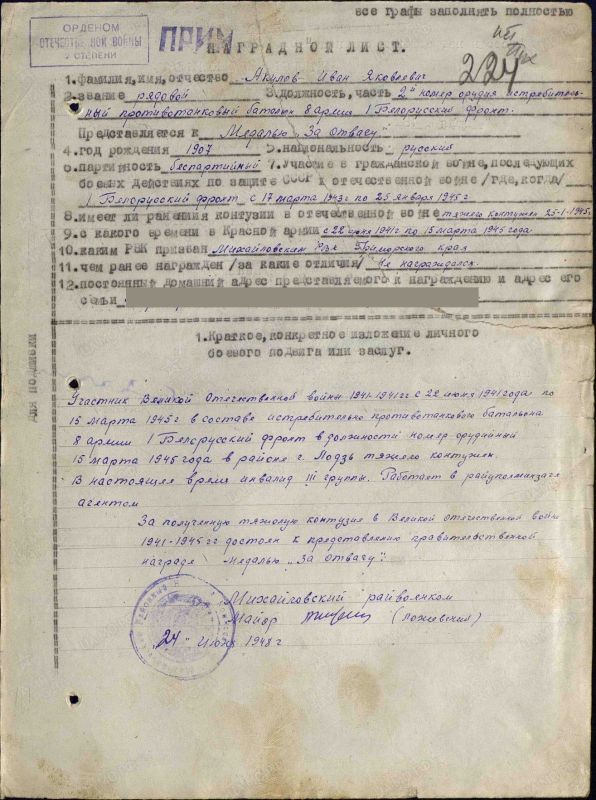 все графы заполнять полностью
ОРДЕНОМ
ОТЕЧЕСТВЕННОЙ ВОЙНЫ
СТЕПЕНИ
ПРИМ
НАГРАДНОЙ ЛИСТ.
224
1. фамилия, имя, отчество Акулов Иван Яковлевич
2. звание рядовой 3. должность, часть 2й номер орудия истребитель-
ный противотанковый батальон 8 армия 1 Белорусский фронт.
Представляется к Медалью „За отвагу“
4. год рождения 1907 5. национальность русский
6. партийность беспартийный 7. Участие в гражданской войне, последующих
боевых действиях по защите СССР и отечественной войне /где, когда/
1 Белорусский фронт с 17 марта 1943г по 25 января 1945г
8. имеет ли ранения и контузии в отечественной войне тяжело контужен 25-1-1945г
9. с какого времени в Красной армии с 22 июня 1941г по 15 марта 1945 года
10. каким РВК призван Михайловским Рвк Приморского края
11. чем ранее награжден /за какие отличия/ Не награждался.
12. постоянный домашний адрес представляемого к награждению и адрес его
семьи
1. Краткое, конкретное изложение личного
боевого подвига или заслуг.
для подшивки
Участник Великой Отечественной войны 1941-1941гг с 22 июня 1941 года по
15 марта 1945г в составе истребительно противотанкового батальона
8 армии 1 Белорусский фронт в должности номер орудийный
15 марта 1945 года в районе г. Лодзь тяжело контужен.
В настоящее время инвалид III группы. Работает в райуполминзаге
агентом
За полученную тяжелую контузию в Великой отечественной войне
1941-1945гг достоен к представлению правительственной
награде медалью „За отвагу“.
Михайловский райвоенком
Майор (Ложевский)
„24“ июня 1948г